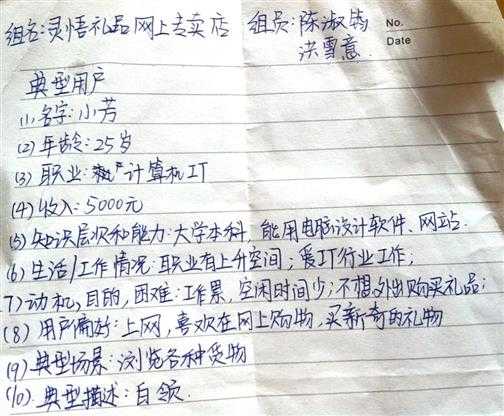 组名:灵悟礼品网上专卖店 组员:陈淑筠 No.
洪雪意 Date
典型用户
(1)名字:小芳
(2)年龄:25岁
(3)职业:计算机IT
(4)收入:5000元
(5)知识层次和能力:大学本科,能用电脑设计软件、网站.
(6)生活/工作情况:职业有上升空间;爱IT行业工作;
(7)动机,目的,困难:工作累,空闲时间少;不想外出购买礼品;
(8)用户偏好:上网,喜欢在网上购物,买新奇的礼物
(9)典型场景:浏览各种货物
(10).典型描述:白领.